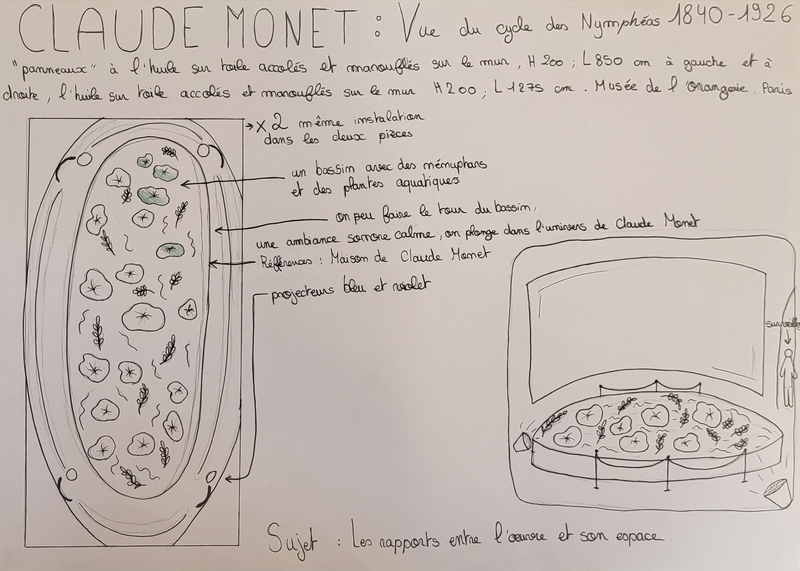 CLAUDE MONET : Vue du cycle des Nymphéas 1840-1926
"panneaux" à l'huile sur toile accolés et marouflés sur le mur, H 200 ; L 850 cm à gauche et à
droite, l'huile sur toile accolés et marouflés sur le mur H 200 ; L 1275 cm. Musée de l'Orangerie, Paris
→ x 2 même instalation
dans les deux pièces
un bassim avec des ménuphars
et des plantes aquatiques
on peu faire le tour du bassin,
une ambiance sonore calme, on plonge dans l'univers de Claude Monet
Références : Maison de Claude Monet
projecteurs bleu et violet
Sujet : Les rapports entre l'œuvre et son espace